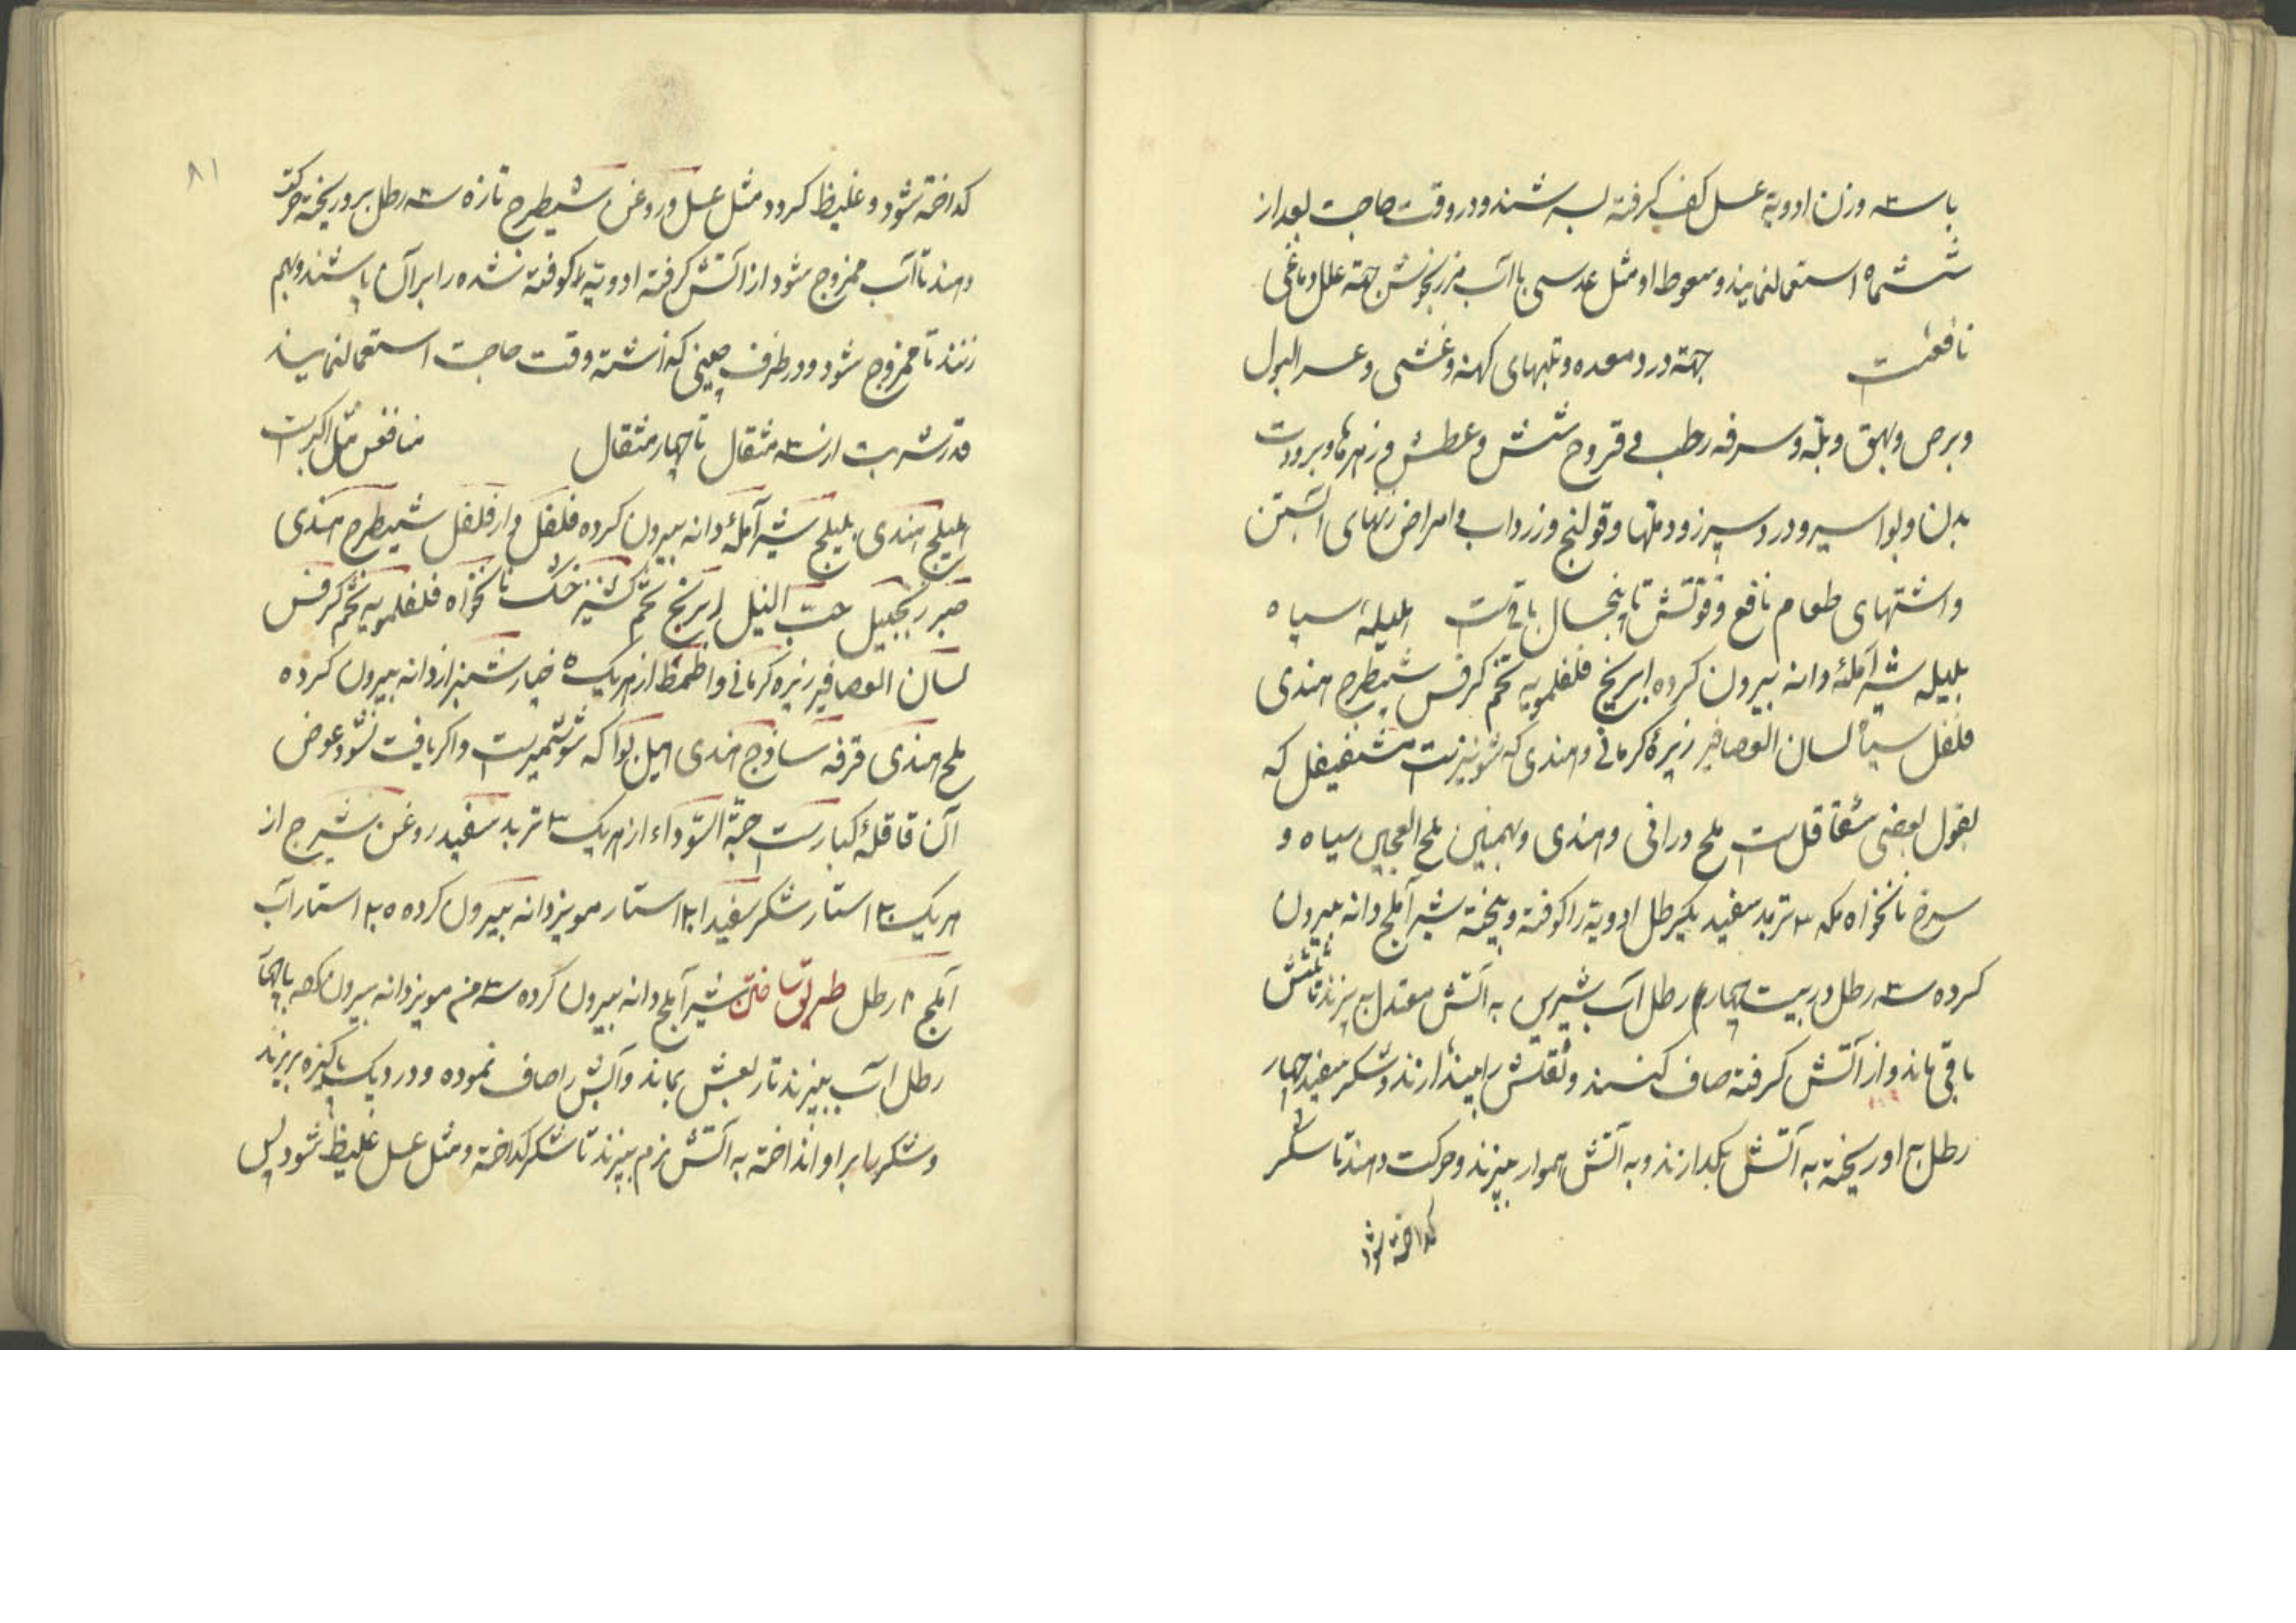 با سه وزن ادویه عسل کف گرفته بسرشند و در وقت حاجت بعد از
ششماه استعمالنمایند و سعوط او مثل عدسی با آب مرزنجوش جهة علل دماغی
نافعست جهة درد معده و تبهای کهنه و غشی و عسر البول
و برص و بهق و بلّه و سرفه رطب و قروح شش و عطش و زهرها و برودت
بدن و بواسیر و درد سپرز و دملها و قولنج و زرداب و امراض زنهای آبستن
و اشتهای طعام نافع و قوتش تا پنجسال باقیست هلیله سیاه
بلیله شیر آمله دانه بیرون کرده ابرنج فلفلمویه تخم کرفس شیطرج هندی
فلفل سیاه لسان العصافیر زیره کرمانی و هندی که شونیزست شقیقل که
بقول بعضی شقاقل است ملح درانی و هندی و همچنین ملح العجین سیاه و
سرخ نانخواه مکه ۳ تربد سفید یکرطل ادویه را کوفته و بیخته شیر آملج دانه بیرون
کرده سه رطل در بیست چهار رطل آب شیرین به آتش معتدل بپزند تا ثلثش
باقی ماند و از آتش گرفته صاف کنند و ثقلش را بیندازند و شکر سفید چهار
رطل به او ریخته به آتش بگدازند و به آتش هموار بپزند و حرکت دهند تا شکر
گداخته شود
۸۱
گداخته شود و غلیظ گردد مثل عسل و روغن شیطرج تازه سه رطل برو ریخته حرکت
دهند تا آب ممزوج شود از آتش گرفته ادویه کوفته شده را بر آن پاشند و بهم
زنند تا ممزوج شود و در ظرف چینی گذاشته وقت حاجت استعمالنمایند
قدر شربت از سه مثقال تا چهار مثقال منافعش مثل اکبرست
هلیلج هندی بلیلج شیر آمله دانه بیرون کرده فلفل دار فلفل شیطرج هندی
صبر زنجبیل حب النیل ابرنج تخم گشنیز خشک نانخواه فلفلمویه تخم کرفس
لسان العصافیر زیره کرمانی از هریک ۵ خیار شنبر از دانه بیرون کرده
ملح هندی قرفه ساذج هندی هیل بوا که شوشمیرست و اگر یافت نشود عوض
آن قاقله کبارست حبة السوداء از هریک ۳ تربد سفید روغن شیرج از
هریک استار شکر سفید استار مویز دانه بیرون کرده استار آب
آملج رطل طریق ساختن شیر آملج دانه بیرون کرده سه من مویز دانه بیرون
رطل آب بپزند تا ربعش بماند و آبش را صاف نموده و در دیک پاکیزه بریزند
و شکر را بر او انداخته به آتش نرم بپزند تا شکر گداخته و مثل عسل غلیظ شود پس